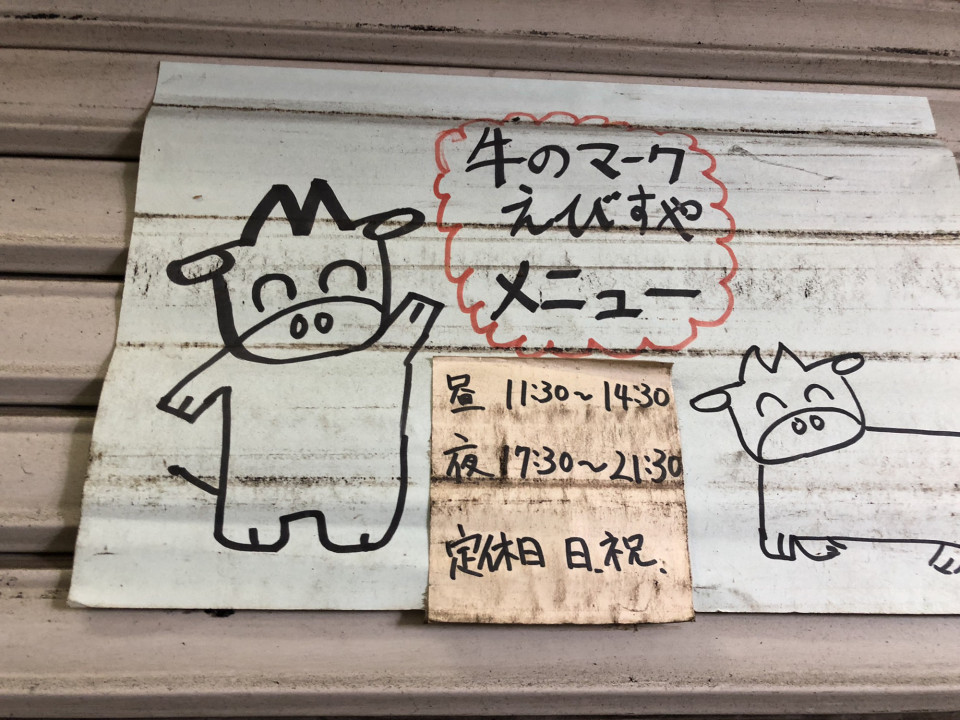 牛のマーク
えびすや
メニュー
昼 11:30～14:30
夜 17:30～21:30
定休日 日.祝.